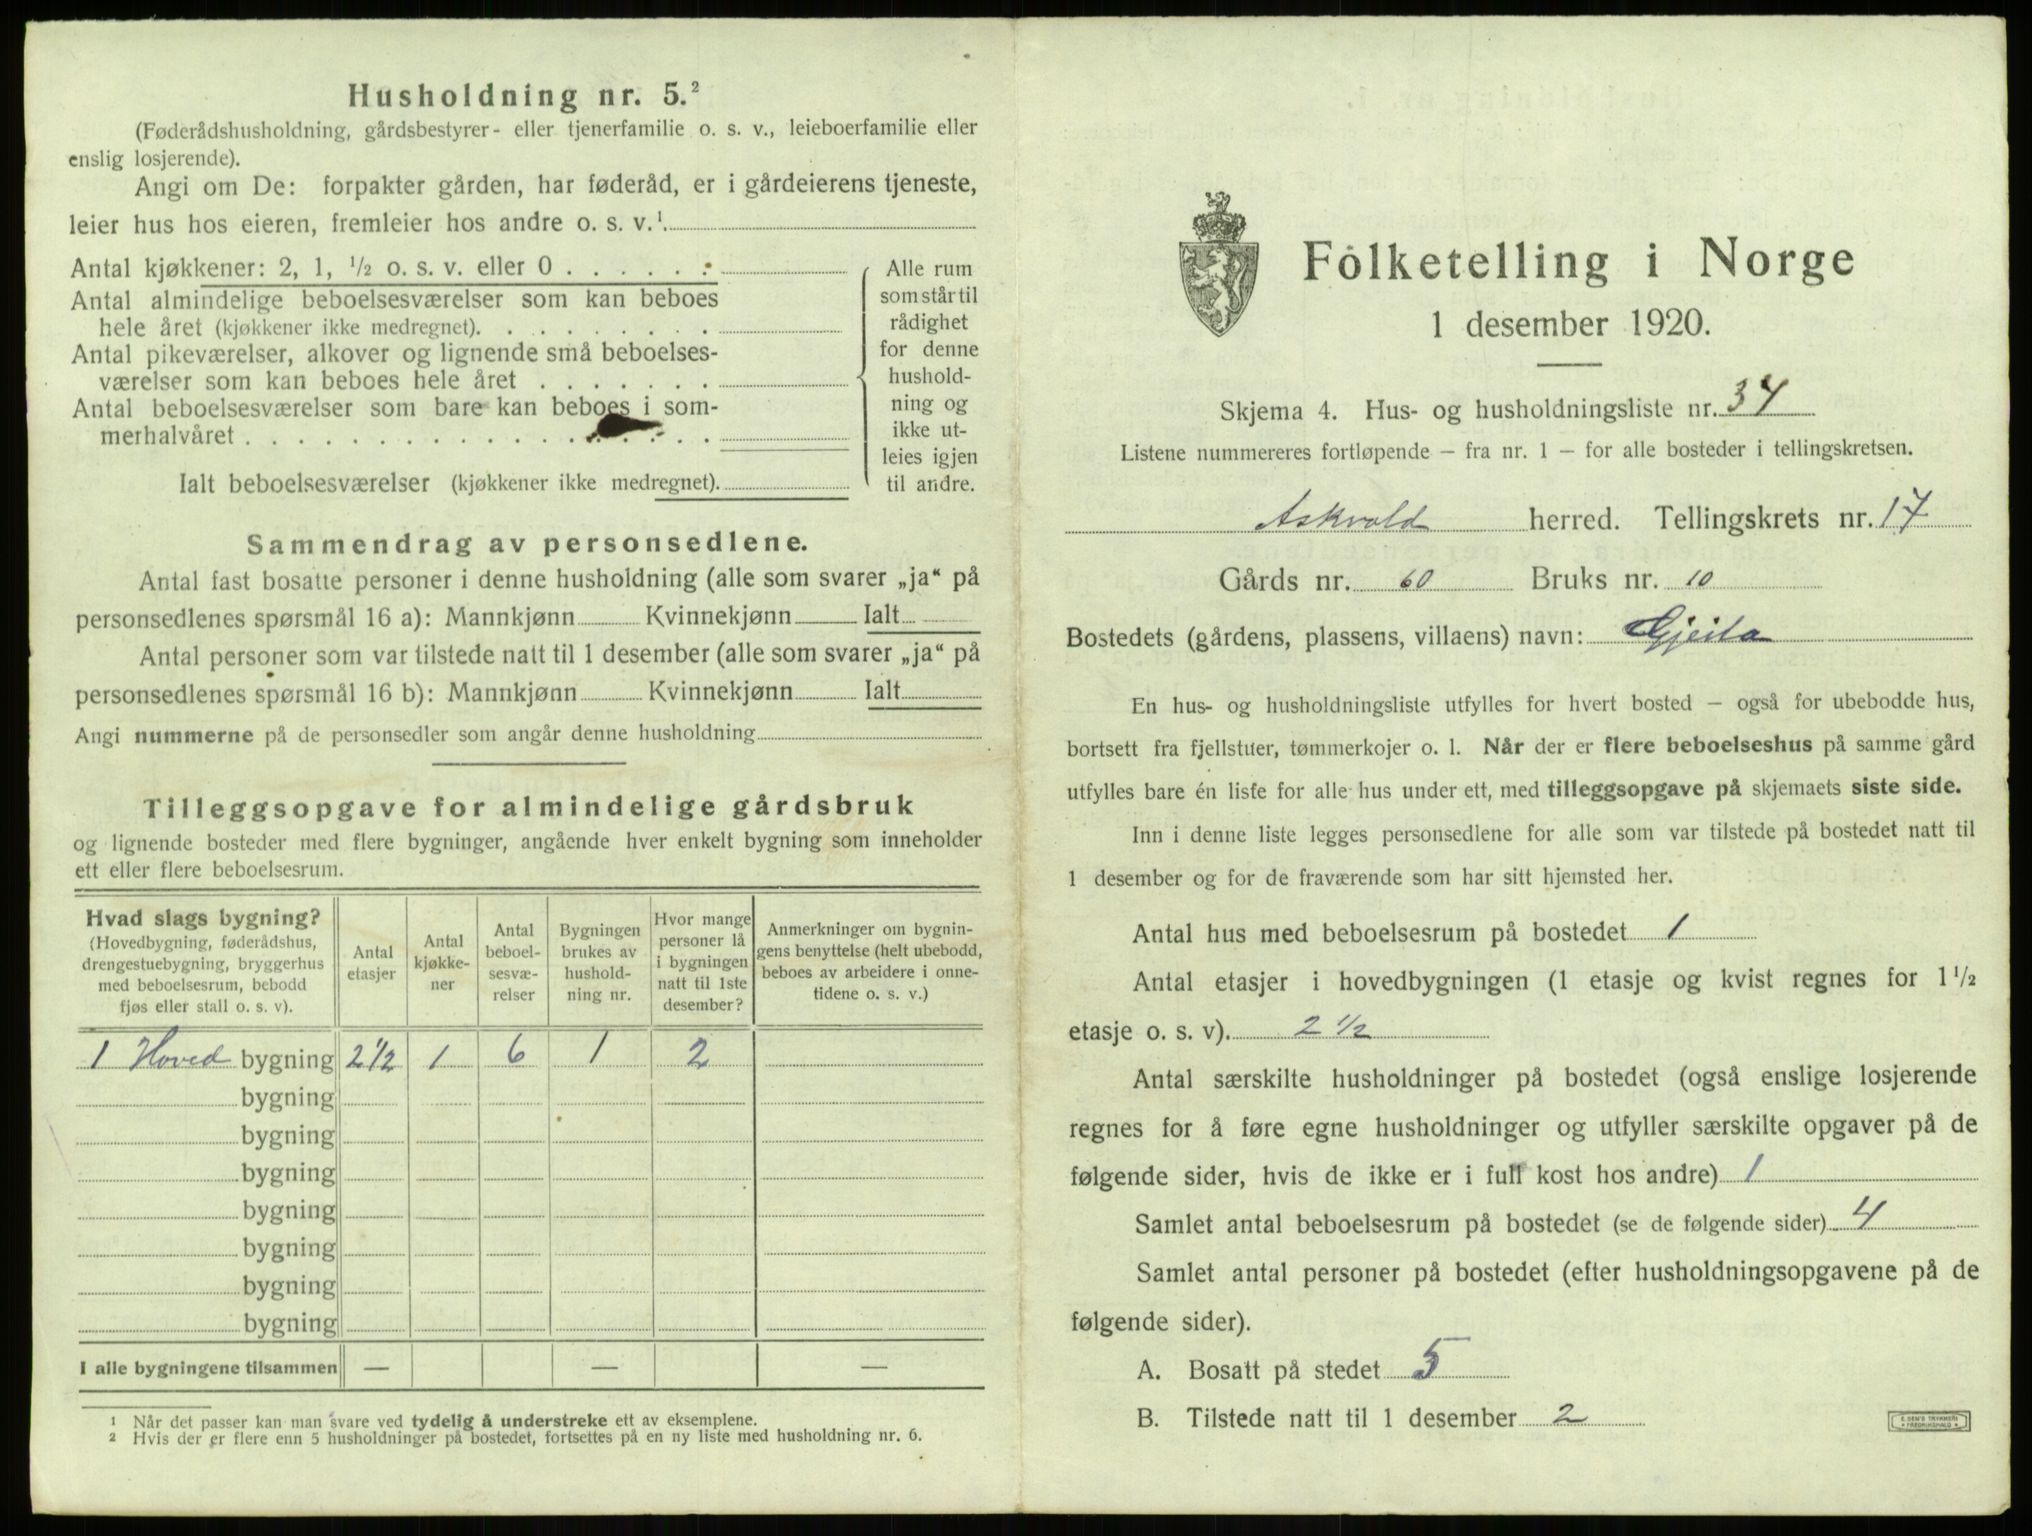 Husholdning nr. 5.²
(Føderådshusholdning, gårdsbestyrer- eller tjenerfamilie o. s. v., leieboerfamilie eller
enslig losjerende).
Angi om De: forpakter gården, har føderåd, er i gårdeierens tjeneste,
leier hus hos eieren, fremleier hos andre o. s. v.¹.
Antal kjøkkener: 2, 1, ½ o. s. v. eller 0 . . . . . .
Antal almindelige beboelsesværelser som kan beboes
hele året (kjøkkener ikke medregnet). . . . . . . . .
Antal pikeværelser, alkover og lignende små beboelses-
værelser som kan beboes hele året . . . . . . .
Antal beboelsesværelser som bare kan beboes i som-
merhalvåret . . . . . . . . . . . . . . . . . .
Ialt beboelsesværelser (kjøkkener ikke medregnet).
Alle rum
som står til
rådighet
for denne
hushold-
ning og
ikke ut-
leies igjen
til andre.
Sammendrag av personsedlene.
Antal fast bosatte personer i denne husholdning (alle som svarer „ja“ på
personsedlenes spørsmål 16 a): Mannkjønn Kvinnekjønn Ialt
Antal personer som var tilstede natt til 1 desember (alle som svarer „ja“ på
personsedlenes spørsmål 16 b): Mannkjønn Kvinnekjønn Ialt
Angi nummerne på de personsedler som angår denne husholdning
Tilleggsopgave for almindelige gårdsbruk
og lignende bosteder med flere bygninger, angående hver enkelt bygning som inneholder
ett eller flere beboelsesrum.
Hvad slags bygning?
(Hovedbygning, føderådshus,
drengestuebygning, bryggerhus
med beboelsesrum, bebodd
fjøs eller stall o. s. v).
Antal
etasjer
Antal
kjøkke-
ner
Antal
beboel-
sesvæ-
relser
Bygningen
brukes av
hushold-
ning nr.
Hvor mange
personer lå
i bygningen
natt til 1ste
desember?
Anmerkninger om bygnin-
gens benyttelse (helt ubebodd,
beboes av arbeidere i onne-
tidene o. s. v.)
1 Hoved bygning 2½ 1 6 1 2
bygning
bygning
bygning
bygning
bygning
bygning
bygning
I alle bygningene tilsammen — — —
¹ Når det passer kan man svare ved tydelig å understreke ett av eksemplene.
² Hvis der er flere enn 5 husholdninger på bostedet, fortsettes på en ny liste med husholdning nr. 6.
Folketelling i Norge
1 desember 1920.
Skjema 4. Hus- og husholdningsliste nr. 34
Listene nummereres fortløpende — fra nr. 1 — for alle bosteder i tellingskretsen.
Askvold herred. Tellingskrets nr. 17
Gårds nr. 60 Bruks nr. 10
Bostedets (gårdens, plassens, villaens) navn: Gjeita
En hus- og husholdningsliste utfylles for hvert bosted — også for ubebodde hus,
bortsett fra fjellstuer, tømmerkojer o. l. Når der er flere beboelseshus på samme gård
utfylles bare én liste for alle hus under ett, med tilleggsopgave på skjemaets siste side.
Inn i denne liste legges personsedlene for alle som var tilstede på bostedet natt til
1 desember og for de fraværende som har sitt hjemsted her.
Antal hus med beboelsesrum på bostedet 1
Antal etasjer i hovedbygningen (1 etasje og kvist regnes for 1½
etasje o. s. v). 2½
Antal særskilte husholdninger på bostedet (også enslige losjerende
regnes for å føre egne husholdninger og utfyller særskilte opgaver på de
følgende sider, hvis de ikke er i full kost hos andre) 1
Samlet antal beboelsesrum på bostedet (se de følgende sider) 4
Samlet antal personer på bostedet (efter husholdningsopgavene på de
følgende sider).
A. Bosatt på stedet 5
B. Tilstede natt til 1 desember 2
E. SEM'S TRYKKERI
FREDRIKSHALD